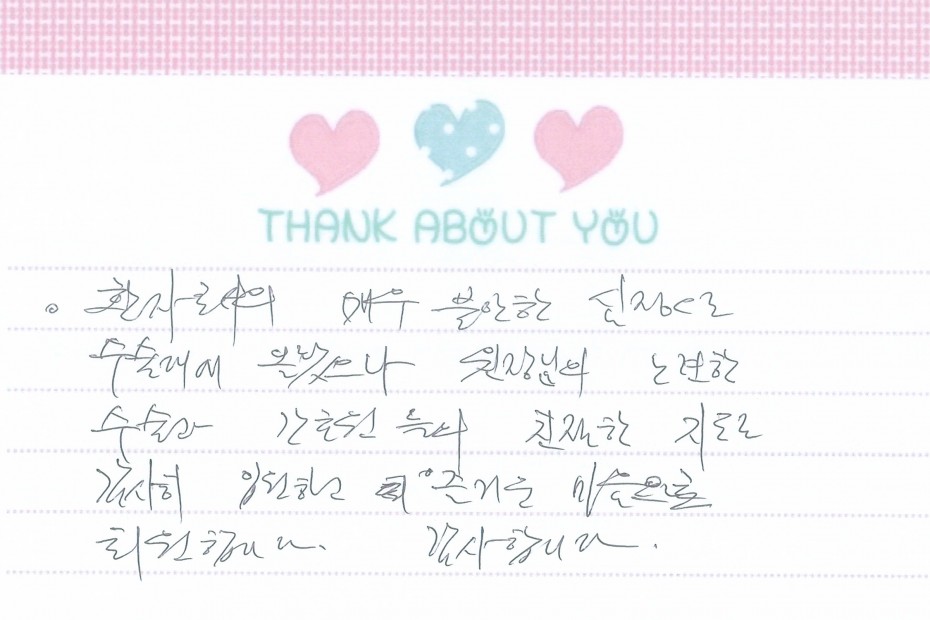 THANK ABOUT YOU
매우 불안한 심정으로
수술대에 올랐으나 원장님의 노련한
수술과 간호원들의 친절한 치료로
감사히 입원하고 즐거운 마음으로
퇴원합니다. 감사합니다.